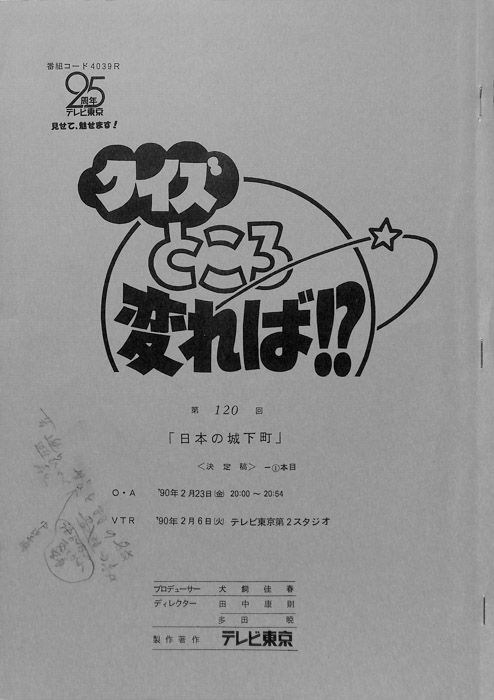 番組コード4039R
25
周年
テレビ東京
見せて、魅せます!
クイズ
ところ
変れば!?
第 120 回
「日本の城下町」
<決定稿> ー①本目
O・A '90年2月23日(金) 20:00〜20:54
VTR '90年2月6日(火) テレビ東京第2スタジオ
プロデューサー 犬飼佳春
ディレクター 田中康則
多田暁
製作著作 テレビ東京